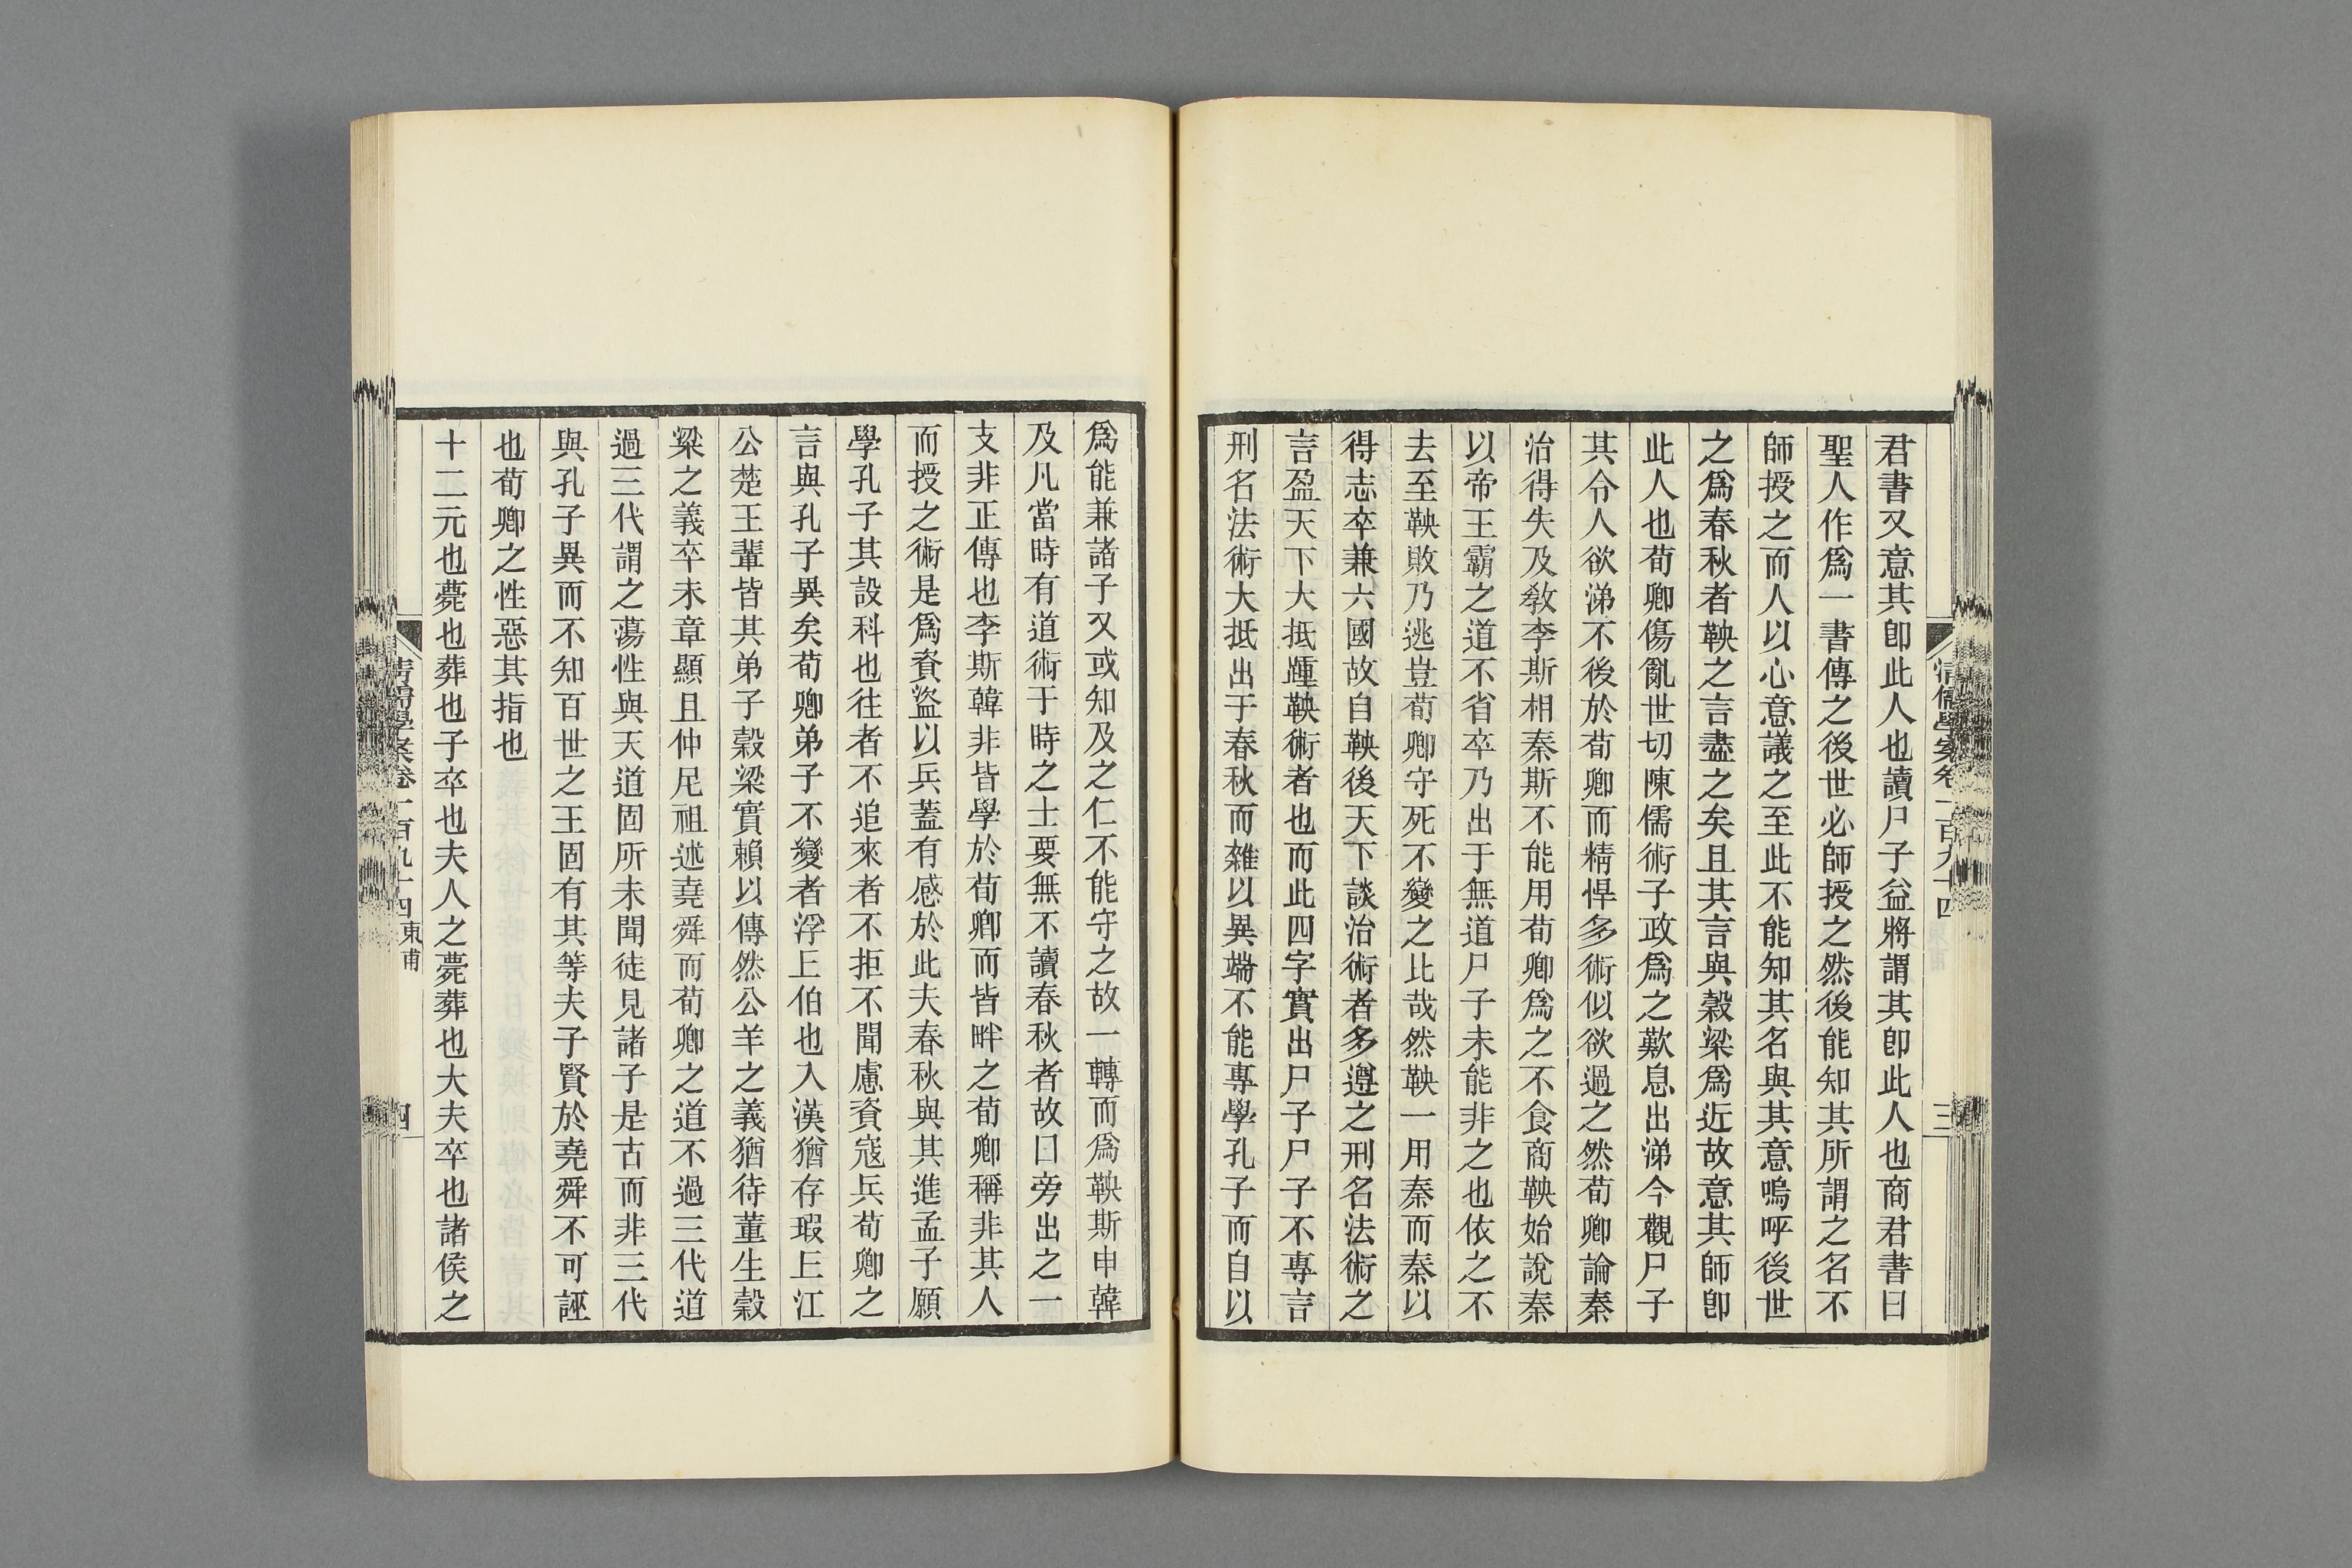 君書又意其卽此人也讀尸子益將謂其卽此人也商君書曰
聖人作爲一書傳之後世必師授之然後能知其所謂之名不
師授之而人以心意議之至此不能知其名與其意嗚呼後世
之爲春秋者鞅之言盡之矣且其言與穀梁爲近故意其師卽
此人也荀卿傷亂世切陳儒術子政爲之歎息出涕今觀尸子
其令人欲涕不後於荀卿而精悍多術似欲過之然荀卿論秦
治得失及敎李斯相秦斯不能用荀卿爲之不食商鞅始說秦
以帝王霸之道不省卒乃出于無道尸子未能非之也依之不
去至鞅敗乃逃豈荀卿守死不變之比哉然鞅一用秦而秦以
得志卒兼六國故自鞅後天下談治術者多遵之刑名法術之
言盈天下大抵踵鞅術者也而此四字實出尸子尸子不專言
刑名法術大抵出于春秋而雜以異端不能專學孔子而自以
清儒學案卷一百九十四
三
爲能兼諸子又或知及之仁不能守之故一轉而爲鞅斯申韓
及凡當時有道術于時之士要無不讀春秋者故曰旁出之一
支非正傳也李斯韓非皆學於荀卿而皆畔之荀卿稱非其人
而授之術是爲資盜以兵蓋有感於此夫春秋與其進孟子願
學孔子其設科也往者不追來者不拒不聞慮資寇兵荀卿之
言與孔子異矣荀卿弟子不變者浮丘伯也入漢猶存瑕丘江
公楚王輩皆其弟子穀梁實賴以傳然公羊之義猶待董生穀
梁之義卒未章顯且仲尼祖述堯舜而荀卿之道不過三代道
過三代謂之蕩性與天道固所未聞徒見諸子是古而非三代
與孔子異而不知百世之王固有其等夫子賢於堯舜不可誣
也荀卿之性惡其指也
十二元也薨也葬也子卒也夫人之薨葬也大夫卒也諸侯之
清儒學案卷一百九十四 東甫
四